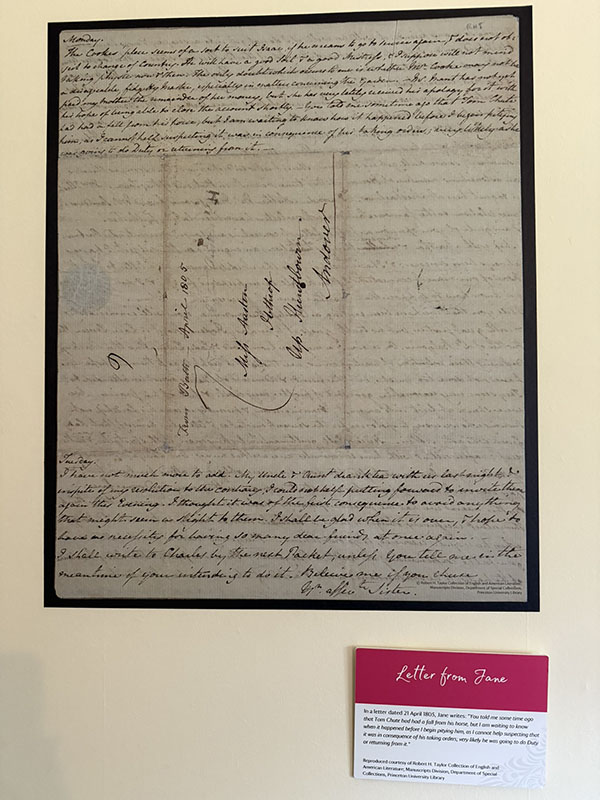 Monday.
The Cookes' place seems of a sort to suit Isaac, if he means to go to service again, & does not ob-
ject to change of Country. He will have a good Soil, & a good Mistress, & I suppose will not mind
taking physic now & then. The only doubt which occurs to me is whether Mr. Cooke may not be
a disagreable, fidgetty Master, especially in matters concerning the Garden.— Mr. Mant has not yet
paid my Mother the remainder of her money, but she has very lately received his apology for it, with
his hope of being able to close the account shortly.— You told me some time ago that Tom Chute
had had a fall from his horse, but I am waiting to know how it happened before I begin pitying
him, as I cannot help suspecting it was in consequence of his taking orders; very likely as he
was going to do Duty or returning from it.—
From Bath April 1805
Miss Austen
Ibthrop
Up. Hurstbourn
Andover
Tuesday.
I have not much more to add. My Uncle & Aunt drank tea with us last night, &
inspite of my resolution to the contrary, I could not help putting forward to invite them
again this Evening. I thought it was of the first consequence to avoid anything
that might seem a slight to them. I shall be glad when it is over, & hope to
have no necessity for having so many dear friends at once again.—
I shall write to Charles by the next Packet, unless you tell me in the
meantime of your intending to do it. Believe me if you chuse
Yr affec:te Sister.
© Robert H. Taylor Collection of English and American Literature,
Manuscripts Division, Department of Special Collections,
Princeton University Library
Letter from Jane
In a letter dated 21 April 1805, Jane writes: "You told me some time ago
that Tom Chute had had a fall from his horse, but I am waiting to know
when it happened before I begin pitying him, as I cannot help suspecting that
it was in consequence of his taking orders; very likely he was going to do Duty
or returning from it."
Reproduced courtesy of Robert H. Taylor Collection of English and
American Literature, Manuscripts Division, Department of Special
Collections, Princeton University Library